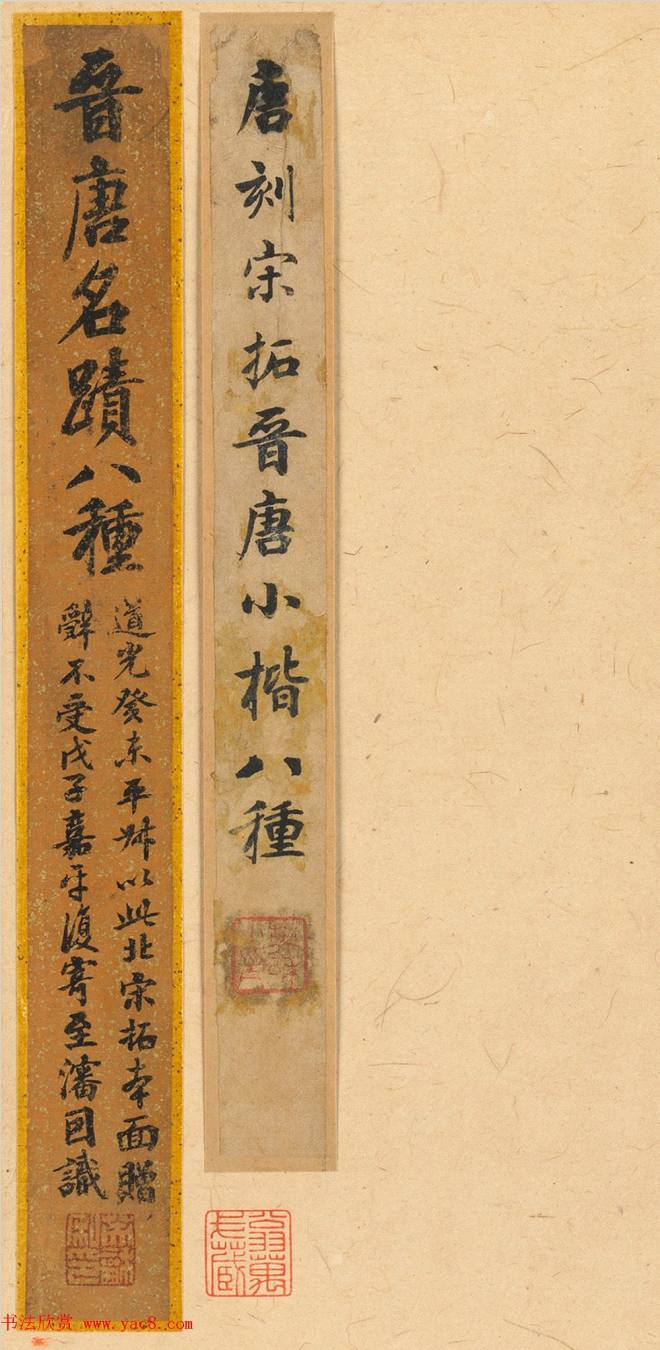 唐刻宋拓晉唐小楷八種
晉唐名蹟八種
道光癸未平叔以此北宋拓本面贈
辭不受戊子嘉平復寄至瀋囙識
翁萬戈藏
书法欣赏 www.yac8.com